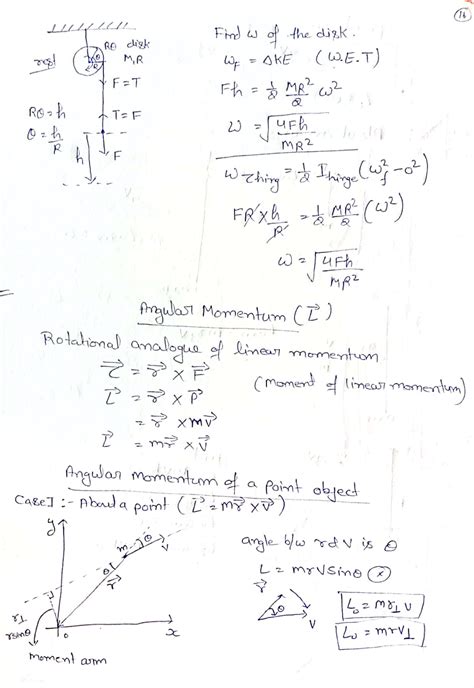 16
Find ω of the disk.
rest
Rθ disk
M,R
θ
F=T
T=F
F
h
Rθ=h
θ = h/R
W_F = ΔKE (W.E.T)
Fh = 1/2 MR²/2 ω²
ω = √(4Fh/MR²)
W_τhing = 1/2 I_hinge (ω_f² - 0²)
FR × h/R = 1/2 MR²/2 (ω²)
ω = √(4Fh/MR²)
Angular Momentum (L⃗)
Rotational analogue of linear momentum
τ⃗ = r⃗ × F⃗
L⃗ = r⃗ × P⃗
(Moment of linear momentum)
= r⃗ × mv⃗
L⃗ = mr⃗ × v⃗
Angular momentum of a point object
Case I :- About a point (L⃗ = mr⃗ × v⃗)
y
m
θ
v
θ
r⃗
r⊥
rsinθ
o
x
moment arm
angle b/w r & v is θ
L = mrvsinθ ⊗
r⃗
θ
v
L₀ = mr⊥v
L₀ = mrv⊥